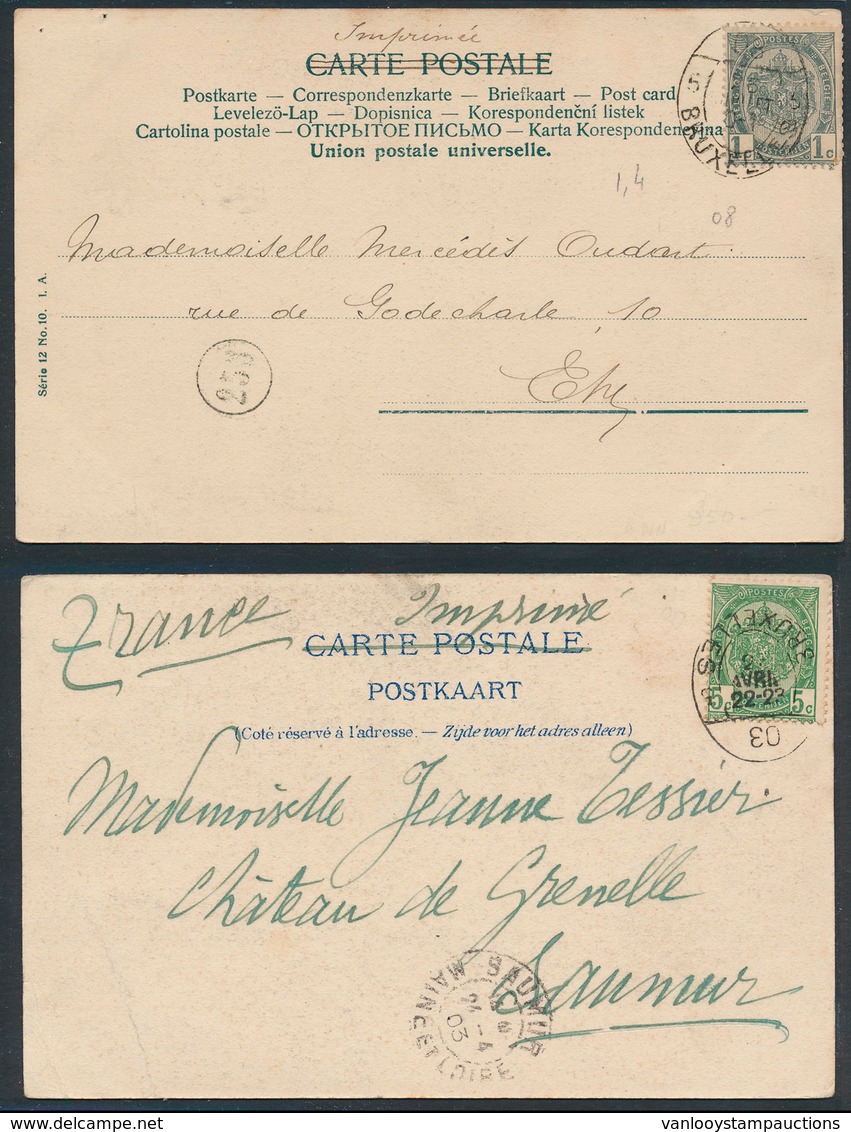 Imprimée
CARTE POSTALE
Postkarte — Correspondenzkarte — Briefkaart — Post card
Levelezö-Lap — Dopisnica — Korespondenční listek
Cartolina postale — ОТКРЫТОЕ ПИСЬМО — Karta Korespondencyjna
Union postale universelle.
POSTES
1 1c
5 BRUXELL
1,4
08
Mademoiselle Mercédès Oudart
rue de Godecharle, 10
Série 12 No. 10. I. A.
253
950
France Imprimé
CARTE POSTALE
POSTKAART
(Coté réservé à l'adresse. — Zijde voor het adres alleen)
POSTES
BRUXELLES
AVRIL
22-23
5c 5c
03
Mademoiselle Jeanne Tessier
Château de Grenelle
Saumur
SAUMUR
MAINE ET LOIRE
03
vanlooystampauctions